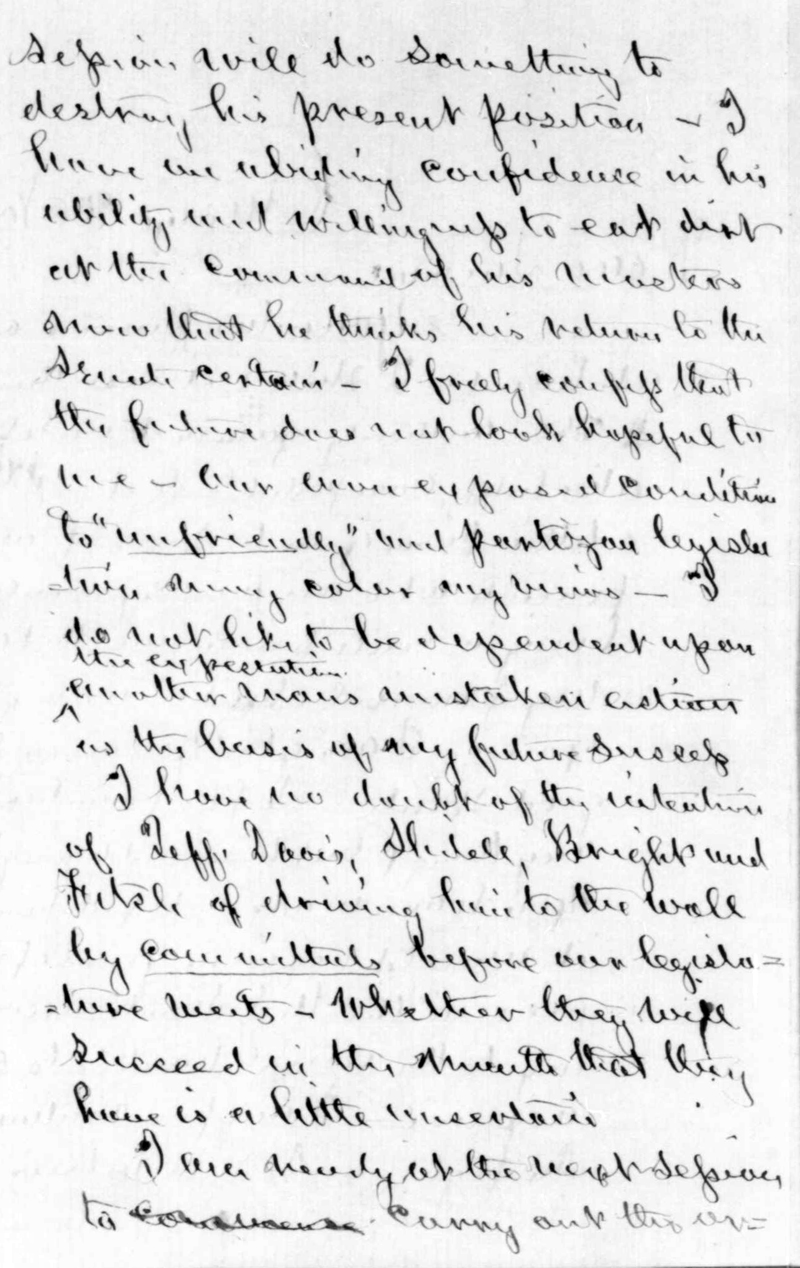 session will do something to
destroy his present position – I
have an abiding confidence in his
ability and willingness to eat dirt
at the command of his masters
now that he thinks his return to the
Senate certain – I freely confess that
the future does not look hopeful to
me – Our own exposed condition
to "unfriendly" and partizan legisla
-tion may color my views – I
do not like to be dependent upon
the expectation
another mans mistaken action
^
as the basis of my future success
I have no doubt of the intention
of Jeff. Davis, Slidell, Bright and
Fitch of driving him to the wall
by committals before our legisla=
=ture meets – Whether they will
succeed in the month that they
have is a little uncertain
I am ready at the next session
to commence carry out the ar=